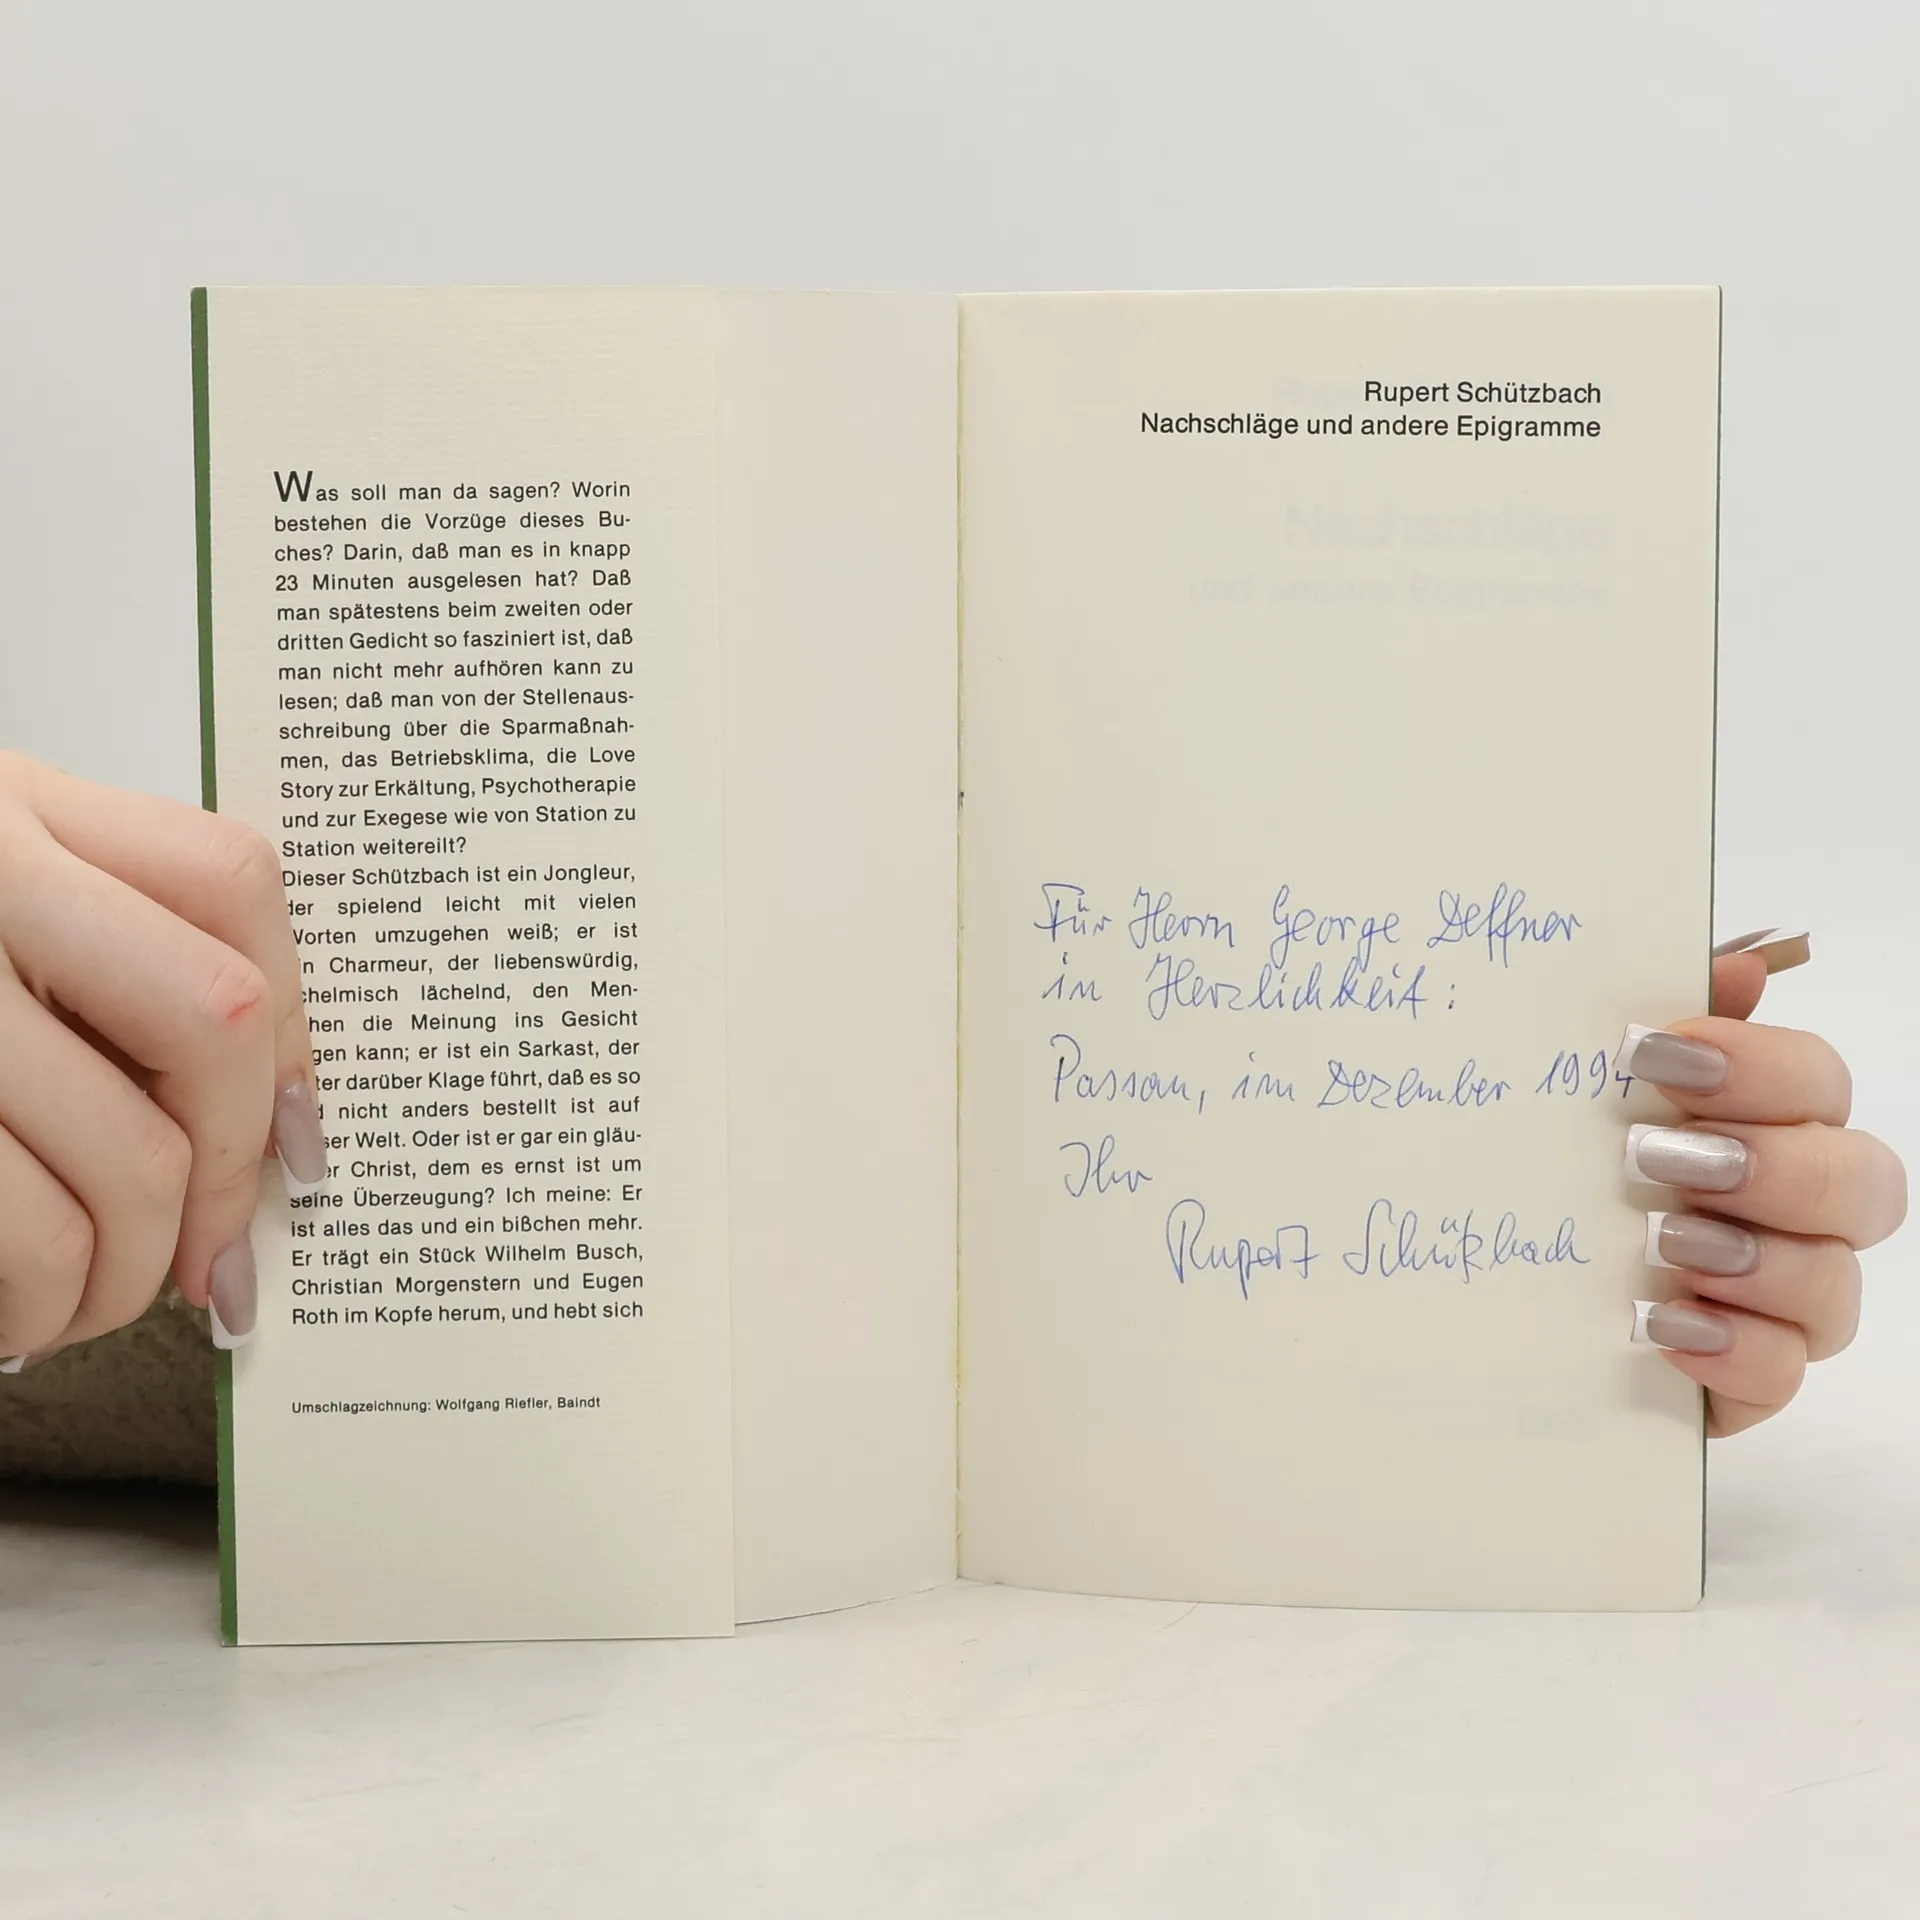 Was soll man da sagen? Worin
bestehen die Vorzüge dieses Bu-
ches? Darin, daß man es in knapp
23 Minuten ausgelesen hat? Daß
man spätestens beim zweiten oder
dritten Gedicht so fasziniert ist, daß
man nicht mehr aufhören kann zu
lesen; daß man von der Stellenaus-
schreibung über die Sparmaßnah-
men, das Betriebsklima, die Love
Story zur Erkältung, Psychotherapie
und zur Exegese wie von Station zu
Station weitereilt?
Dieser Schützbach ist ein Jongleur,
der spielend leicht mit vielen
Worten umzugehen weiß; er ist
Charmeur, der liebenswürdig,
lächelnd, den Men-
die Meinung ins Gesicht
kann; er ist ein Sarkast, der
darüber Klage führt, daß es so
nicht anders bestellt ist auf
Welt. Oder ist er gar ein gläu-
Christ, dem es ernst ist um
seine Überzeugung? Ich meine: Er
ist alles das und ein bißchen mehr.
Er trägt ein Stück Wilhelm Busch,
Christian Morgenstern und Eugen
Roth im Kopfe herum, und hebt sich
Umschlagzeichnung: Wolfgang Riefler, Baindt
Rupert Schützbach
Nachschläge und andere Epigramme
Nachschläge
und andere Epigramme
Für Herrn George Deffner
in Herzlichkeit:
Passau, im Dezember 1994
Ihr
Rupert Schützbach